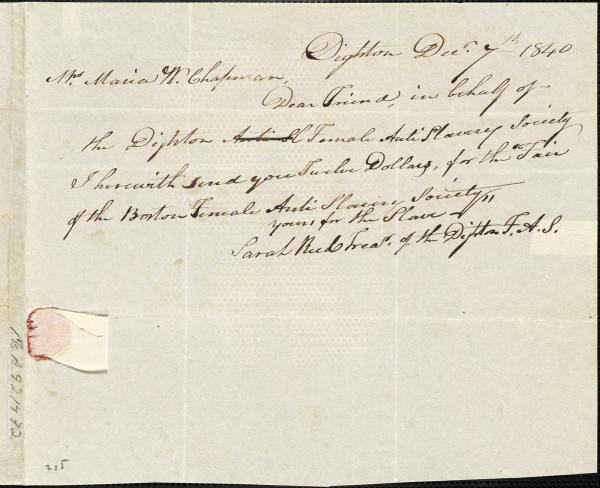 Dighton Dec. 7th 1840
Mrs Maria W. Chapman,
Dear Friend, in behalf of
the Dighton Anti Sl Female Anti Slavery Society
I herewith send you Twelve Dollars, for the Fair
of the Boston Female Anti Slavery Society
yours for the Slave
Sarah Treas. of the Dighton F. A. S.
205